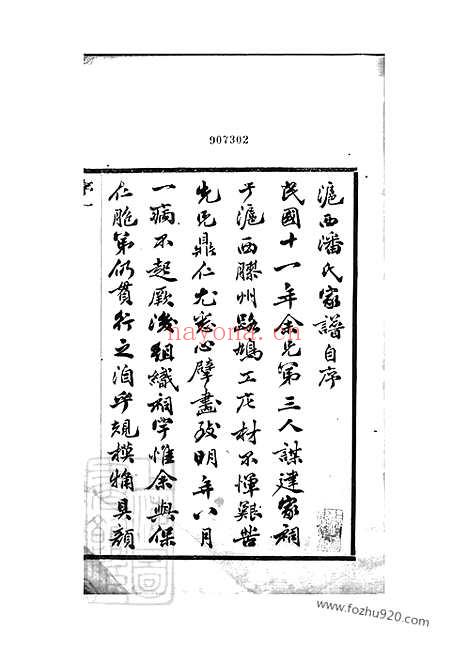 907302
滬西潘氏家譜自序
民國十一年余兄弟三人謀建家祠
于滬西膠州路鳩工庀材不憚艱苦
先兄鼎仁尤悉心擘畫致明年八月
一病不起厥後組織祠宇惟余與保
仁胞弟仍貫行之洎乎規模粗具顏
序一
nayona.cn
www.fozhu920.com